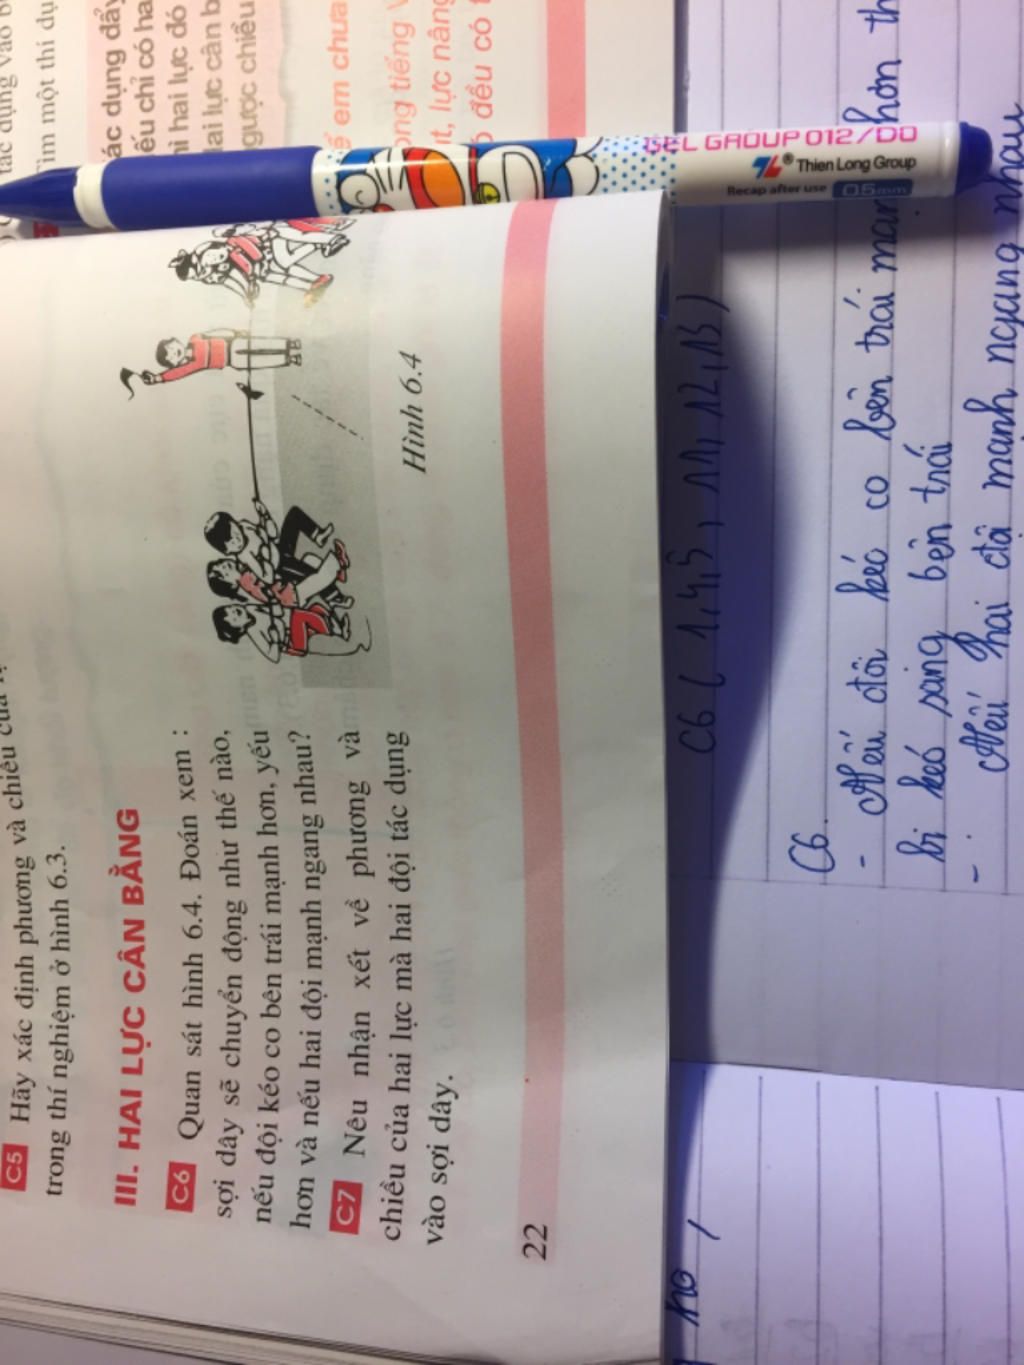 C5 Hãy xác định phương và chiều của
trong thí nghiệm ở hình 6.3.
III. HAI LỰC CÂN BẰNG
C6 Quan sát hình 6.4. Đoán xem :
sợi dây sẽ chuyển động như thế nào,
nếu đội kéo co bên trái mạnh hơn, yếu
hơn và nếu hai đội mạnh ngang nhau?
C7 Nêu nhận xét về phương và
chiều của hai lực mà hai đội tác dụng
vào sợi dây.
Hình 6.4
22
tác dụng vào
một thí dụ
ác dụng đẩy
ếu chỉ có ha
hai lực đó
hai lực cân b
gược chiều
em chưa
ong tiếng V
lực nâng
đều có
GEL GROUP 012/DO
TL® Thien Long Group
Recap after use 0.5mm
C6 ( 1,4,5, 11, 12, 13)
C6.
- Nếu đội kéo co bên trái mạnh hơn th
bị kéo sang bên trái
- Nếu hai đội mạnh ngang nhau